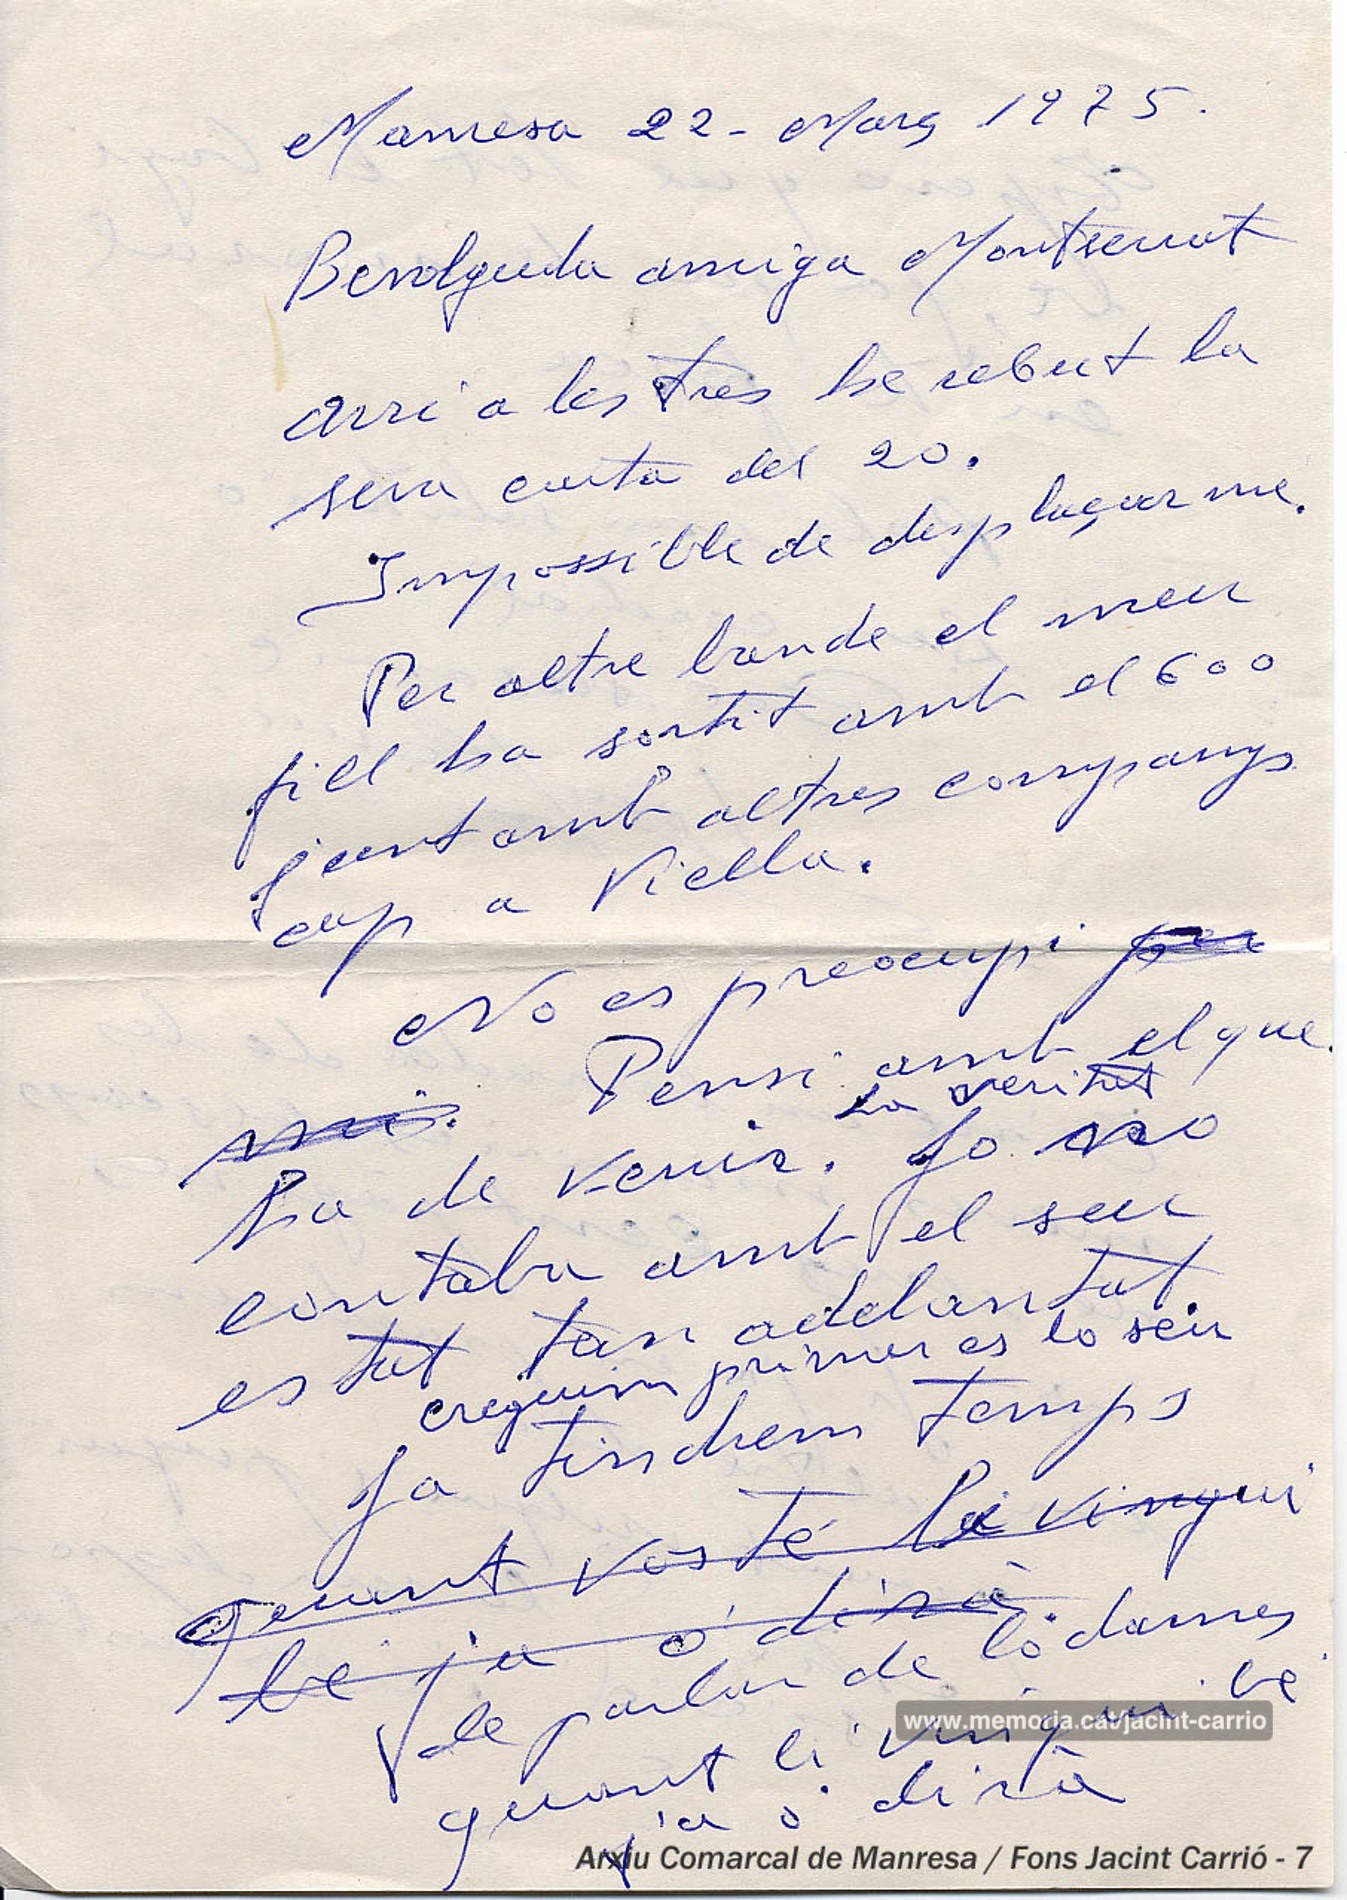 Manresa 22 - Març 1975.
Benvolguda amiga Montserrat
Avui a les tres he rebut la
seva carta del 20.
Impossible de desplaçar me.
Per altre bande el meu
fill ha sortit amb el 600
junt amb altres companys
cap a Viella.
No es preocupi per
mi. Pensi amb el que
ha de venir. La veritat Jo no
contaba amb el seu
estat tan adelantat
creguim primer es lo seu
Ja tindrem temps
quant vostè li vingui
bé ja o dirà
de parlar de lo dames
quant li vingui bé
ja o dirà
www.memoria.cat/jacint-carrio
Arxiu Comarcal de Manresa / Fons Jacint Carrió - 7